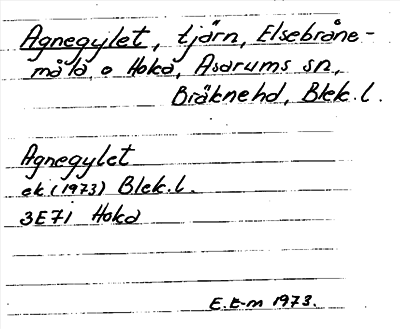 Agnegylet, tjärn, Elsebråne-
måla o Hoka, Asarums sn,
Bräknehd, Blek. l.
Agnegylet
ek. (1973) Blek. l.
3E7i Hoka
E. E-m 1973.